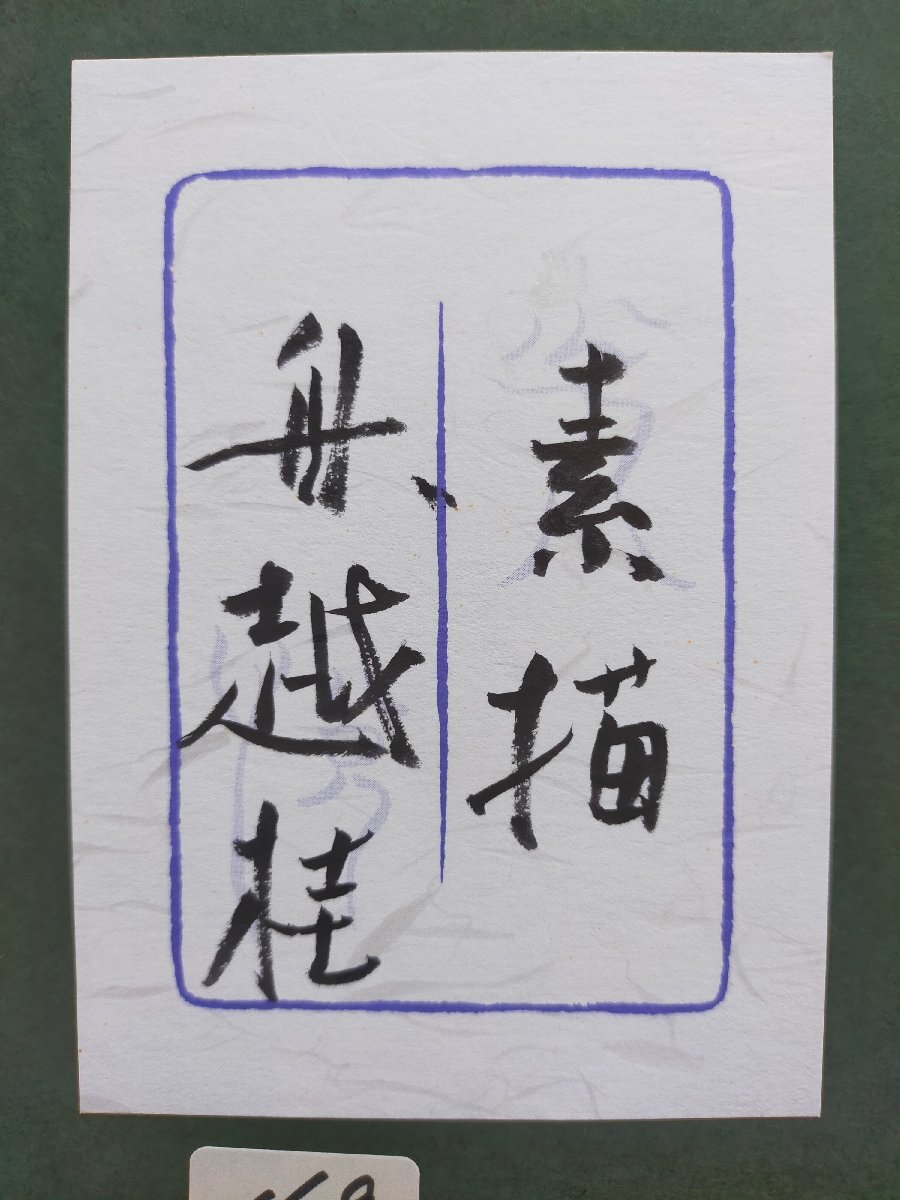 素描
舟越桂